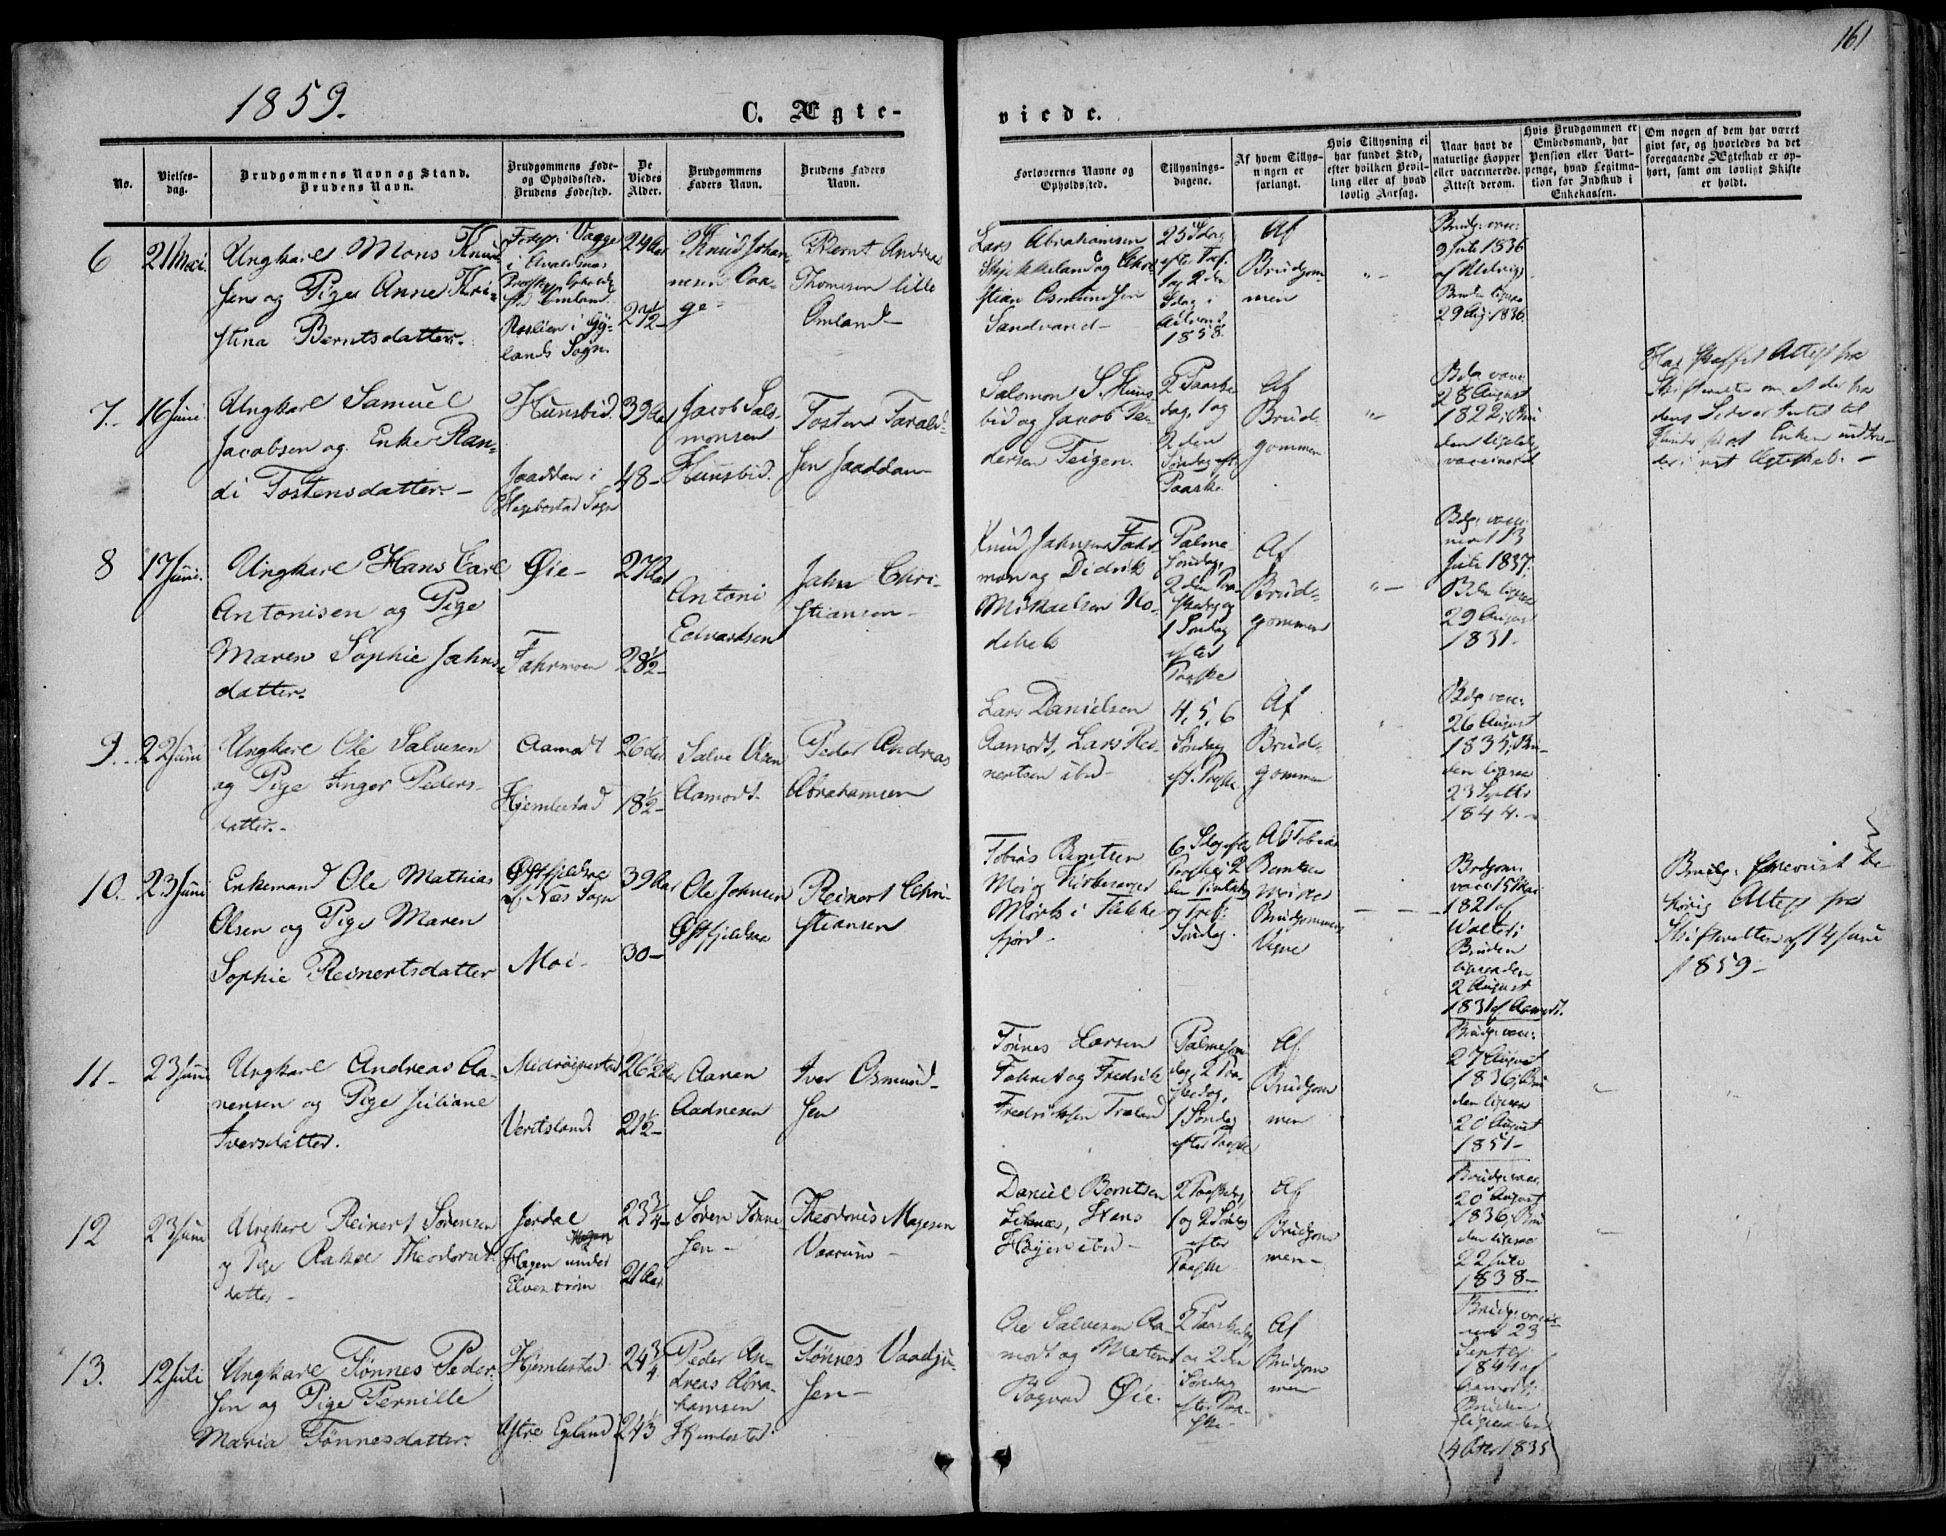 161
1859.
C. Ægte-
viede.
No.
Vielses-
dag.
Brudgommens Navn og Stand.
Brudens Navn.
Brudgommens Føde-
og Opholdssted.
Brudens Fødested.
De
Viedes
Alder.
Brudgommens
Faders Navn.
Brudens Faders
Navn.
Forlovernes Navne og
Opholdssted.
Tillysnings-
dagene.
Af hvem Tillys-
ningen er
forlangt.
Hvis Tillysning ei
har fundet Sted,
efter hvilken Bevil-
ling eller af hvad
lovlig Aarsag.
Naar havt de
naturlige Kopper
eller vaccinerede.
Attest derom.
Hvis Brudgommen er
Embedsmand, har
Pension eller Vart-
penge, hvad Legitima-
tion for Indskud i
Enkekassen.
Om nogen af dem har været
gift før, og hvorledes da det
foregaaende Ægteskab er op-
hørt, samt om lovligt Skifte
er holdt.
6
21 Mai.
Ungkarl Mons Knud-
sen og Pige Anne Kri-
stina Berntsdatter.
i Avaldsnæs
lands Sogn.
24 Aar
27½ -
Knud Johan-
nesen
Bernt Andreas
Thomesen lille
Omland -
Lars Abrahamsen
og Chri-
stian Osmundsen
Sandvand -
23 Sdag
efter Tref.
1 og 2 den
Sdag i
Advent
1858.
Af
Brudgom-
men
" -
Brudg. vacc.
9 Juli 1836
Bruden ligesaa
29 Aug. 1836.
7. -
16 Juni
Ungkarl Samuel
Jacobsen og Enke Ran-
di Tostensdatter. -
Hunsbid.
Jaaddan i
Hegebostad Sogn
39 Aar
48 -
Jacob Salo-
monsen
Hunsbid.
Tosten Tarald-
sen Jaaddan -
Salomon S. Huns-
bid og Jacob Pe-
dersen Teigen.
2 Paaske
dag, 1 og
2 den
Søndag eft.
Paaske.
Af
Brud-
gommen
" -
Bdg. vacc.
28 August
1822, Bru
den ligeledes
vaccineret
Har skaffet Attest fra
Skifteretten om, at der fra
dens Side er Intet til
Hinder for at Enken indtræ-
der i nyt Ægteskab. -
8
17 Juni.
Ungkarl Hans Carl
Antonisen og Pige
Maren Sophie Jahns-
datter.
Øie -
Fahrmoen
27 Aar
28½ -
Antoni
Edvardsen
Jahn Chri-
stiansen -
Knud Jahnsen Fahr
moen og Didrik
Mikaelsen No-
deheb
Palme
Søndag,
2 den Paa-
skedag og
1 Søndag
efter
Paaske
Af
Brud-
gommen
" -
Bdg. vacci-
neret 13
Juli 1837.
Bden ligesaa
29 August
1831 -
9. -
22 Juni
Ungkarl Ole Salvesen
og Pige Inger Peders-
datter. -
Aamodt
Hjemlestad
26 Aar
18½ -
Salve Olsen
Aamodt.
Peder Andreas
Abrahamsen
Lars Danielsen
Aamodt, Lars Rei-
nertsen ibid -
4, 5, 6
Søndag
eft. Paaske.
Af
Brud-
gommen
Bdg. vacc.
26 August
1835, Bru-
den ligesaa
23 Septbr
1844. -
10. -
23 Juni
Enkemand Ole Mathias
Olsen og Pige Maren
Sophie Reinertsdatter
af Næs Sogn
Moi -
39 Aar
30 -
Ole Johnsen
Reinert Chri-
stiansen
Tobias Berntsen
Moi og Kirkesanger
Mørk i Flekke
fjord -
6 Sdag efter
Paaske, 2
den Pintsedag
og Tref.
Søndag.
Af Tobias
Berntsen
Moi paa
Brudgommens
Vegne
- - -
Brudgom.
vacc. 15 Mai
1821 af
Bruden
ligesaa den
2 August
1831 af Aamodt.
Brudg. fremvist be
hørig Attest fra
Skifteretten af 14 Juni
1859 -
11 -
23 Juni
Ungkarl Andreas Aa-
nensen og Pige Juliane
Iversdatter.
Veritsland
26½ Aar
21½ -
Aanen
Aadnesen
Iver Osmund-
sen
Tønnes Larsen
og Fredrik
Fredriksen Træland
Palmeson
dag, 2 Paa-
skedag,
1 Søndag
efter Paaske
Af
Brudgom
men
Brudg. vacc.
27 August
1836, Bru
den ligesaa
20 August
1851 -
12
23 Juni
Ungkarl Reinert Sørensen
og Pige Rakel Theodorus-
datter -
Jerdal
Hagen under
Elvestrøm
23¾ -
21 Aar
Søren Tønne-
sen -
Theodorus Magesen
Vaarum -
Daniel Berntsen
Hans
ibid -
2 Paaskedag
1 og 2 Søndag
efter
Paaske
Af
Brudgom-
men -
Brudg. vacc.
20 August
1836, Bru
den ligesaa
22 Juli
1838 -
13.
12 Juli
Ungkarl Tønnes Peder-
sen og Pige Pernille
Maria Tønnesdatter.
Hjemlestad
Ystre Egeland
24¾
24⅓
Peder An-
dreas Abra-
hamsen
Hjemlestad
Tønnes
sen -
Ole Salvesen Aa-
modt og Morten
Øie.
2 Paaskedag
1 og 2 den
Søndag
efter Paa-
ske -
Af
Brudgom
men
Brudg. vacci-
neret 23
Septbr
1844 af
Aamodt.
Bruden
ligesaa den
4 Octbr 1835